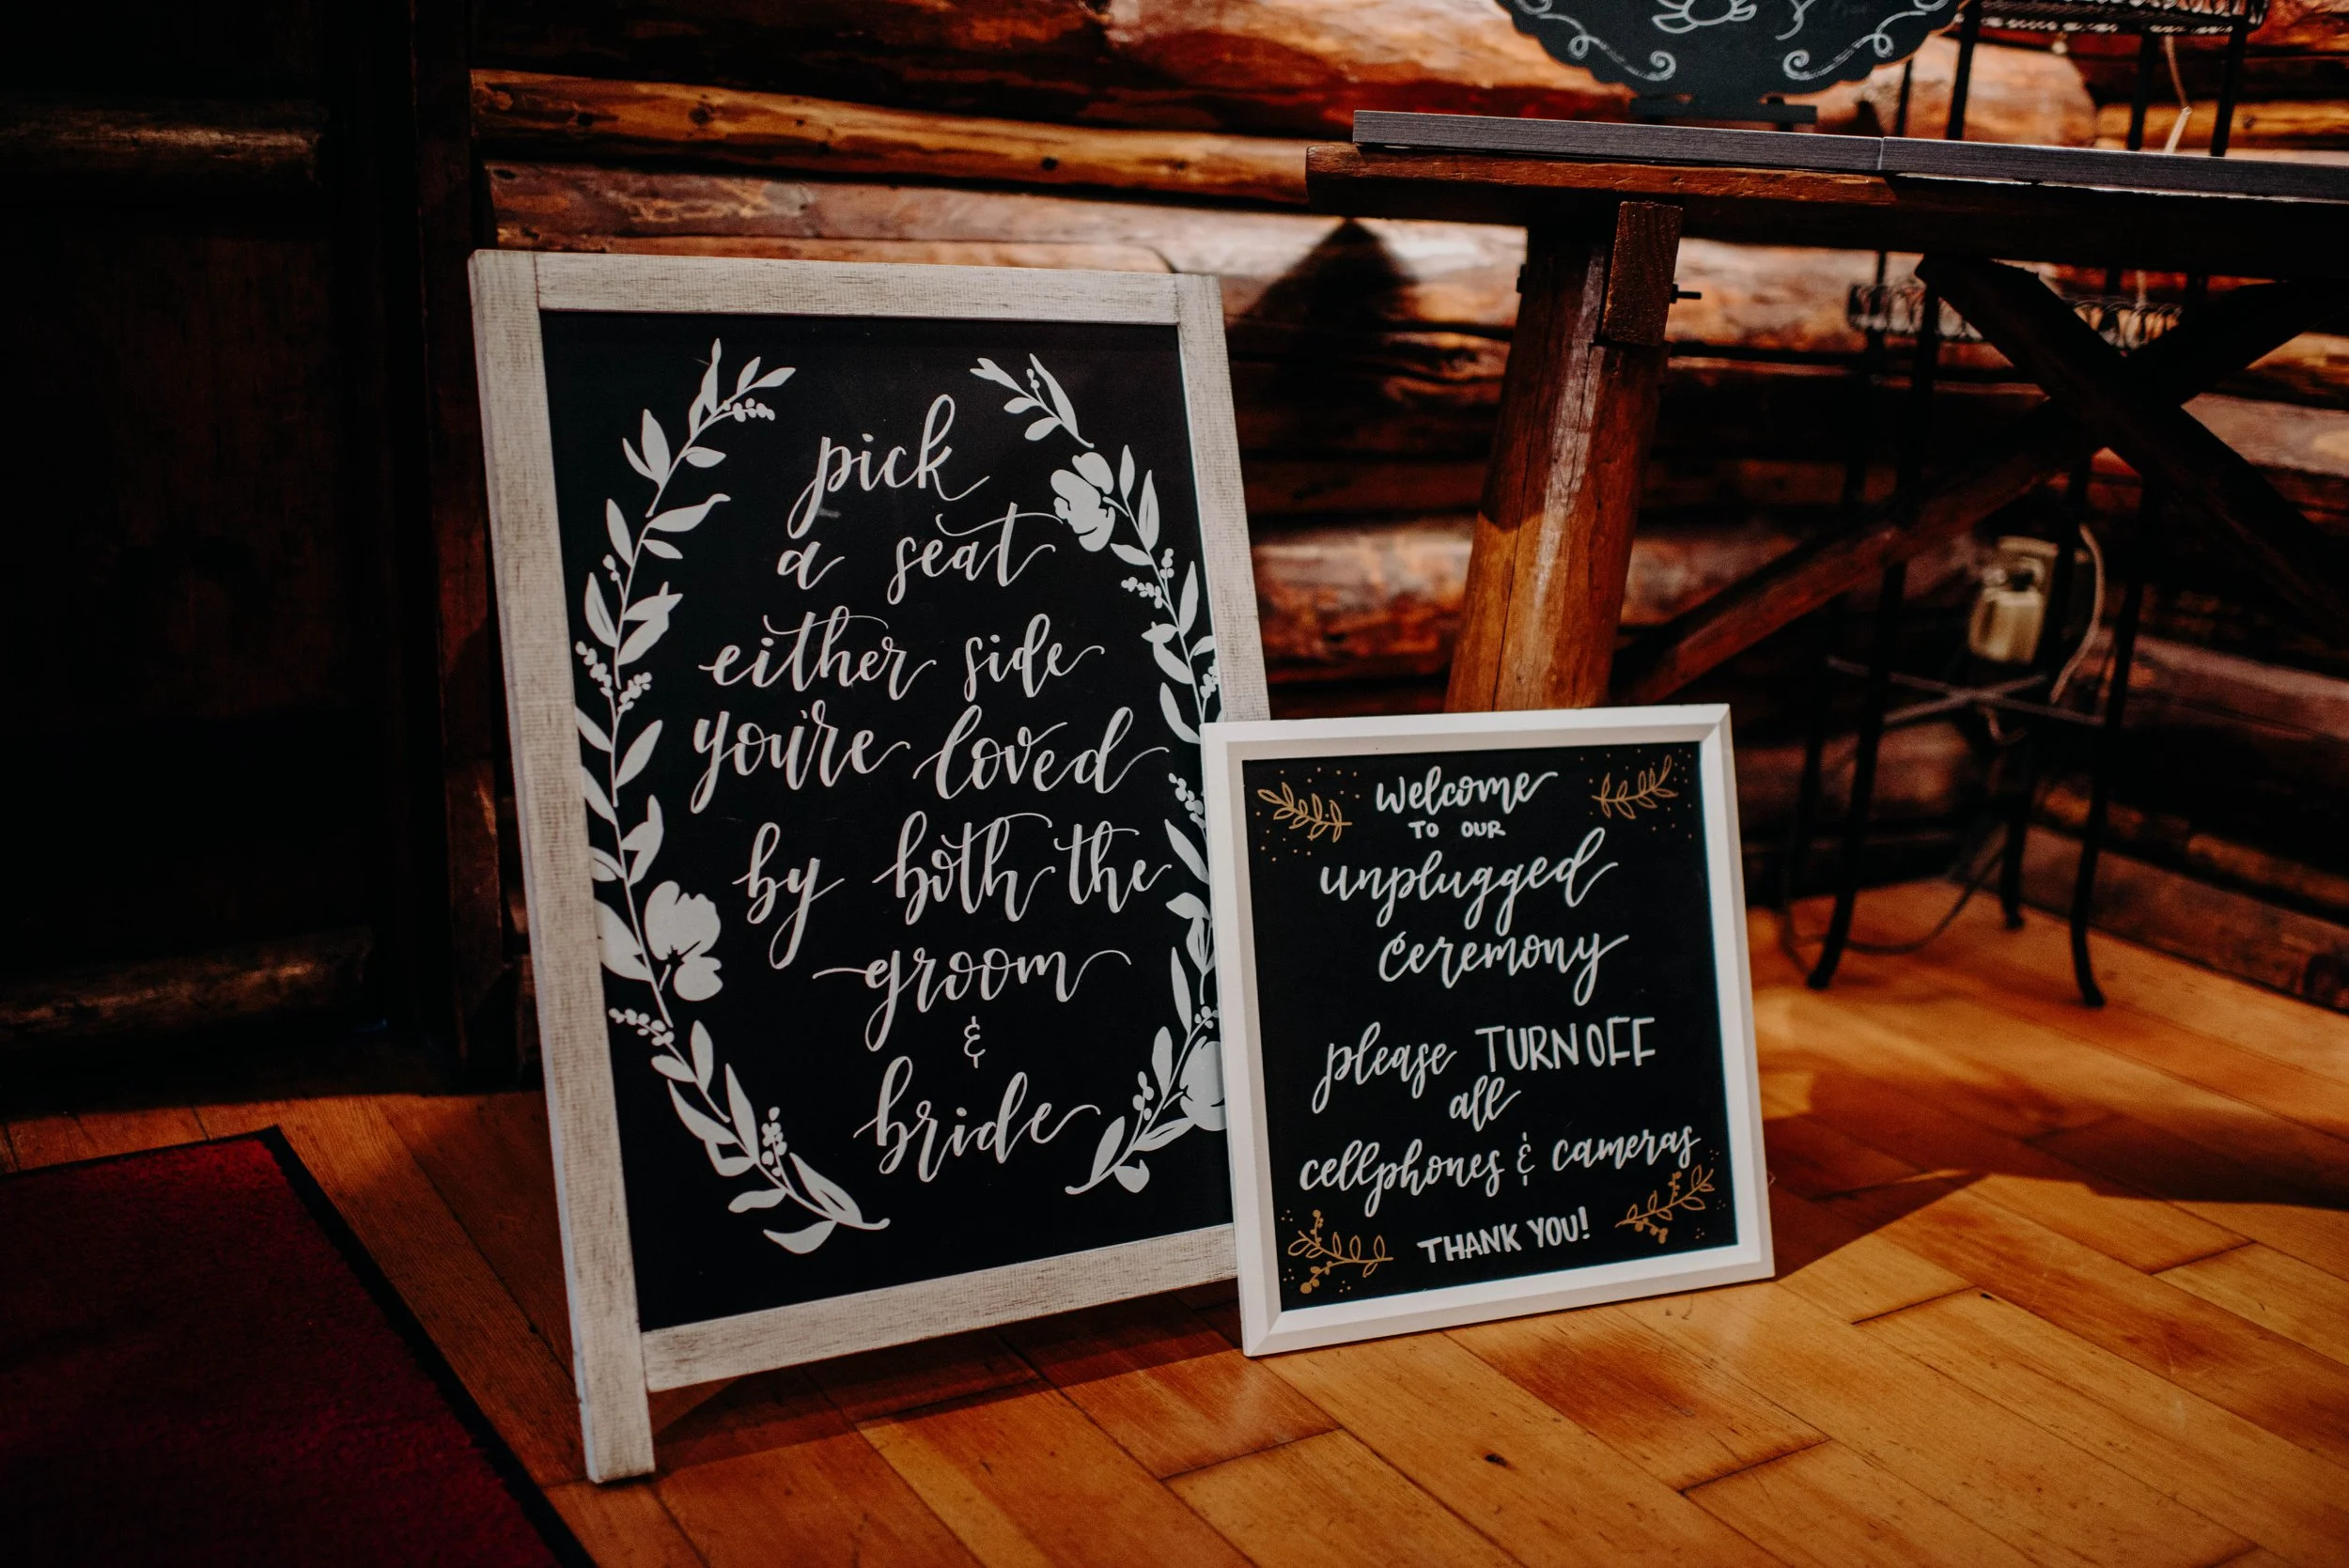 pick
a seat
either side
you're loved
by both the
groom
&
bride
welcome
TO OUR
unplugged
ceremony
please TURN OFF
all
cellphones & cameras
THANK YOU!